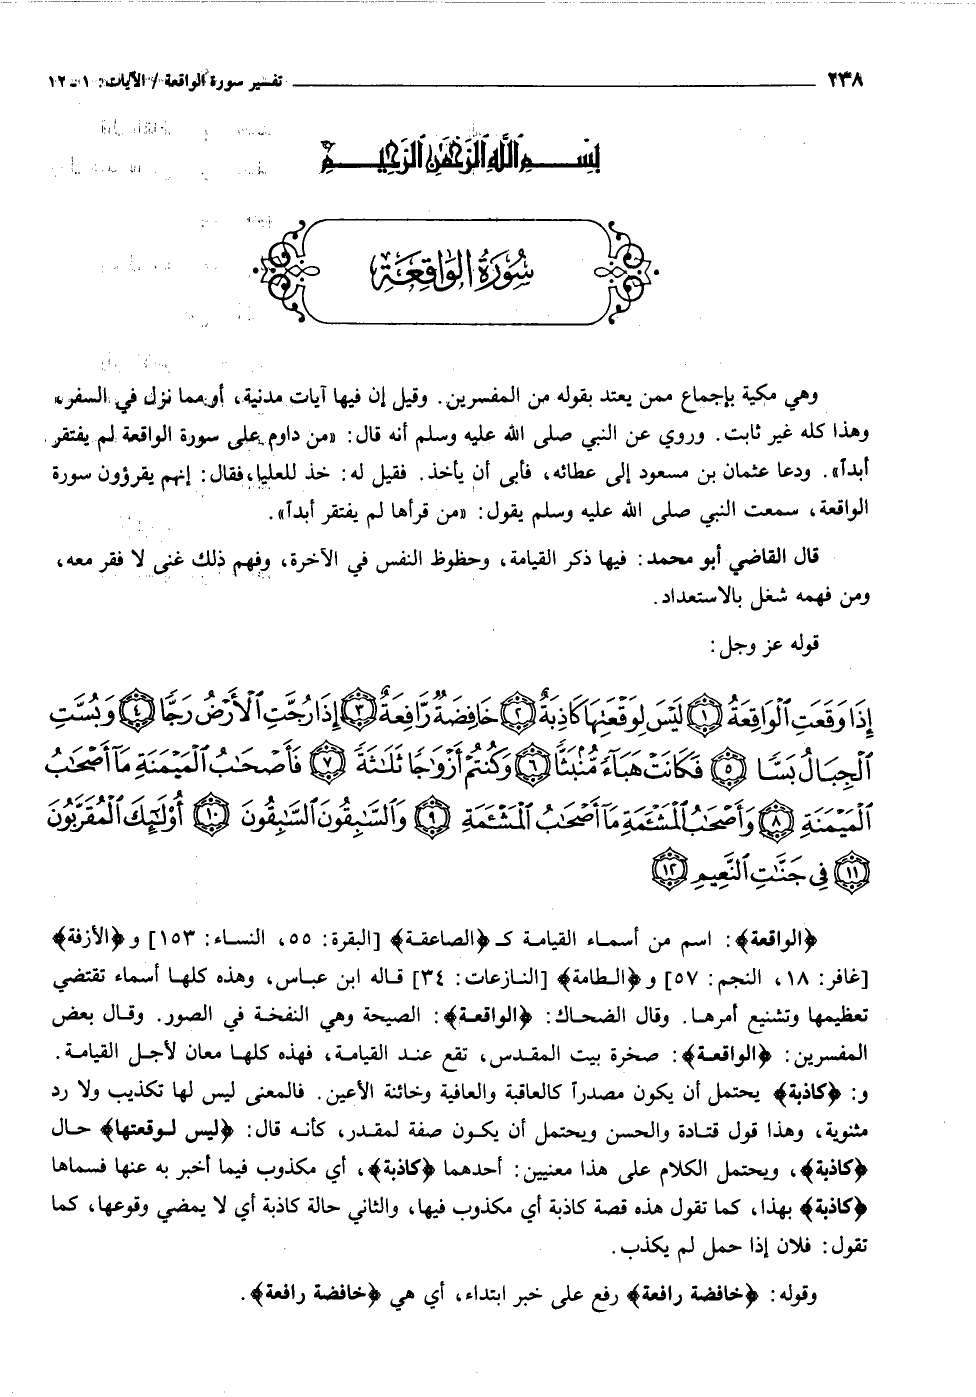 ٢٣٨ تفسير سورة الواقعة / الآيات: ١ ـ ١٢
بِسْمِ اللَّهِ الرَّحْمَنِ الرَّحِيمِ
سُورَةُ الوَاقِعَةِ
وهي مكية بإجماع ممن يعتد بقوله من المفسرين. وقيل إن فيها آيات مدنية، أو مما نزل في السفر،
وهذا كله غير ثابت. وروي عن النبي صلى الله عليه وسلم أنه قال: «من داوم على سورة الواقعة لم يفتقر
أبداً». ودعا عثمان بن مسعود إلى عطائه، فأبى أن يأخذ. فقيل له: خذ للعليا، فقال: إنهم يقرؤون سورة
الواقعة، سمعت النبي صلى الله عليه وسلم يقول: «من قرأها لم يفتقر أبداً».
قال القاضي أبو محمد: فيها ذكر القيامة، وحظوظ النفس في الآخرة، وفهم ذلك غنى لا فقر معه،
ومن فهمه شغل بالاستعداد.
قوله عز وجل:
إِذَا وَقَعَتِ ٱلْوَاقِعَةُ ﴿١﴾ لَيْسَ لِوَقْعَتِهَا كَاذِبَةٌ ﴿٢﴾ خَافِضَةٌ رَّافِعَةٌ ﴿٣﴾ إِذَا رُجَّتِ ٱلْأَرْضُ رَجًّا ﴿٤﴾ وَبُسَّتِ
ٱلْجِبَالُ بَسًّا ﴿٥﴾ فَكَانَتْ هَبَاءً مُّنْبَثًّا ﴿٦﴾ وَكُنتُمْ أَزْوَاجًا ثَلَاثَةً ﴿٧﴾ فَأَصْحَابُ ٱلْمَيْمَنَةِ مَا أَصْحَابُ
ٱلْمَيْمَنَةِ ﴿٨﴾ وَأَصْحَابُ ٱلْمَشْئَمَةِ مَا أَصْحَابُ ٱلْمَشْئَمَةِ ﴿٩﴾ وَٱلسَّابِقُونَ ٱلسَّابِقُونَ ﴿١٠﴾ أُوْلَٰئِكَ ٱلْمُقَرَّبُونَ
﴿١١﴾ فِي جَنَّاتِ ٱلنَّعِيمِ ﴿١٢﴾
﴿الواقعة﴾: اسم من أسماء القيامة كـ ﴿الصاعقة﴾ [البقرة: ٥٥، النساء: ١٥٣] و ﴿الأزفة﴾
[غافر: ١٨، النجم: ٥٧] و ﴿الطامة﴾ [النازعات: ٣٤] قاله ابن عباس، وهذه كلها أسماء تقتضي
تعظيمها وتشنيع أمرها. وقال الضحاك: ﴿الواقعة﴾: الصيحة وهي النفخة في الصور. وقال بعض
المفسرين: ﴿الواقعة﴾: صخرة بيت المقدس، تقع عند القيامة، فهذه كلها معان لأجل القيامة.
و: ﴿كاذبة﴾ يحتمل أن يكون مصدراً كالعاقبة والعافية وخائنة الأعين. فالمعنى ليس لها تكذيب ولا رد
مثنوية، وهذا قول قتادة والحسن ويحتمل أن يكون صفة لمقدر، كأنه قال: ﴿ليس لوقعتها﴾ حال
﴿كاذبة﴾، ويحتمل الكلام على هذا معنيين: أحدهما ﴿كاذبة﴾، أي مكذوب فيما أخبر به عنها فسماها
﴿كاذبة﴾ بهذا، كما تقول هذه قصة كاذبة أي مكذوب فيها، والثاني حالة كاذبة أي لا يمضي وقوعها، كما
تقول: فلان إذا حمل لم يكذب.
وقوله: ﴿خافضة رافعة﴾ رفع على خبر ابتداء، أي هي ﴿خافضة رافعة﴾.